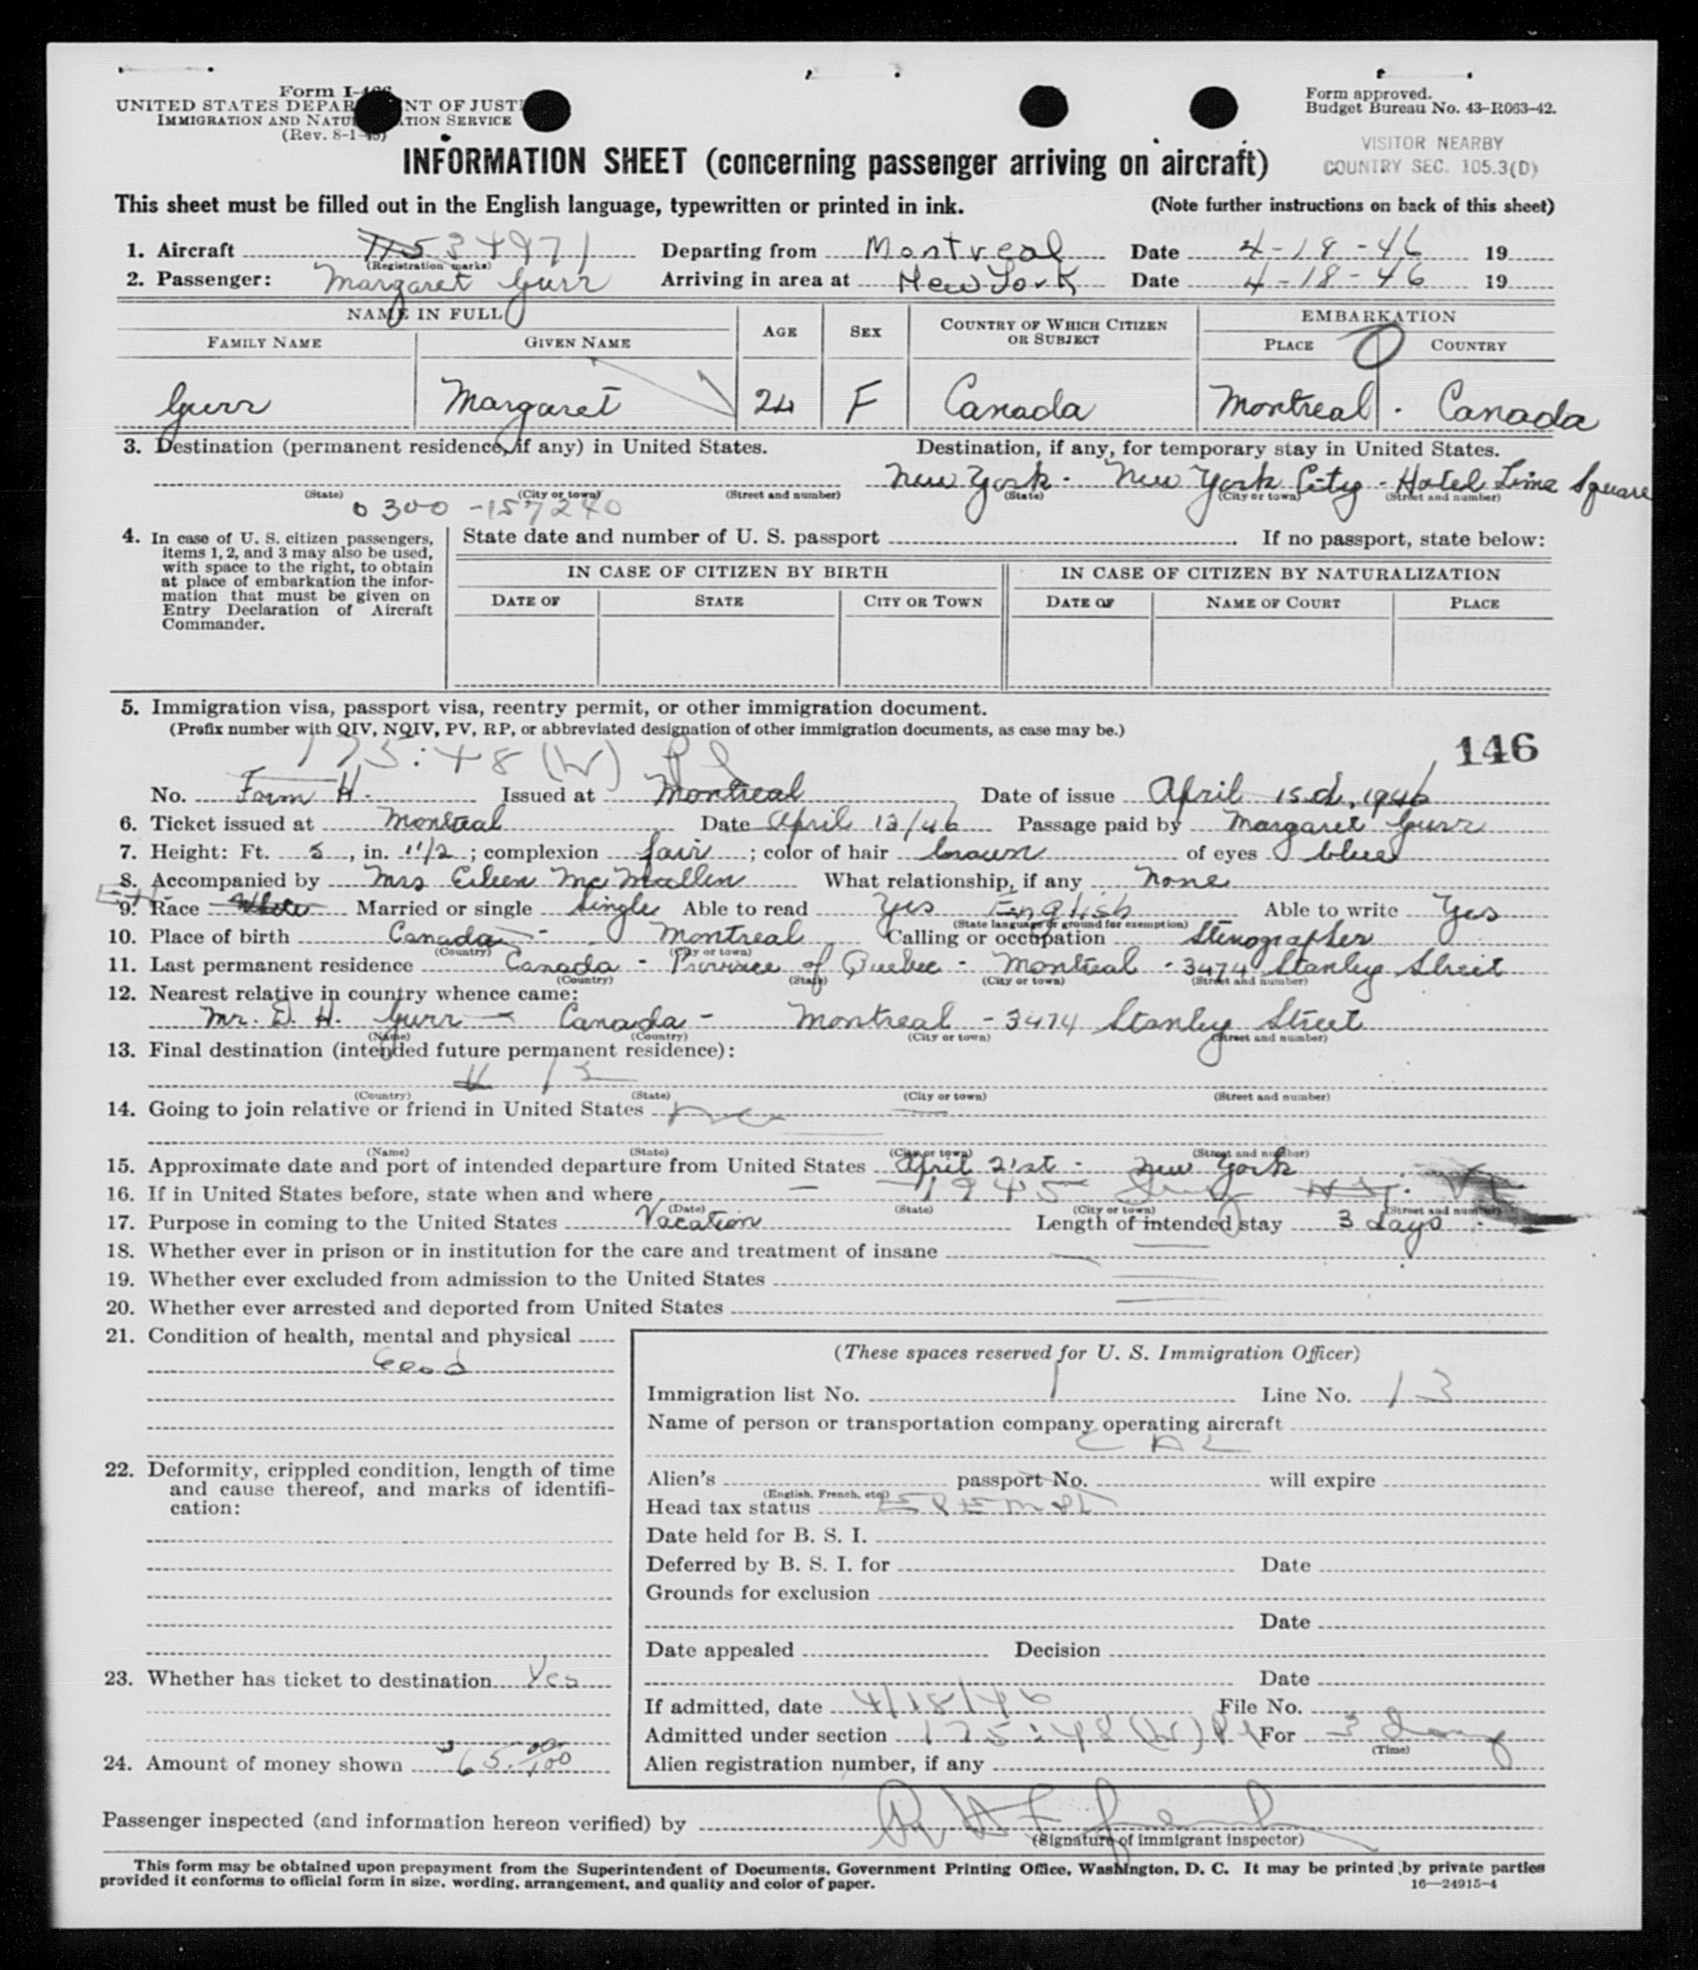 Form I-466
UNITED STATES DEPARTMENT OF JUSTICE
IMMIGRATION AND NATURALIZATION SERVICE
(Rev. 8-1-45)
Form approved.
Budget Bureau No. 43-R063-42.
VISITOR NEARBY
COUNTRY SEC. 105.3(D)
INFORMATION SHEET (concerning passenger arriving on aircraft)
This sheet must be filled out in the English language, typewritten or printed in ink. (Note further instructions on back of this sheet)
1. Aircraft 34971 Departing from Montreal Date 4-18-46 19
(Registration marks)
2. Passenger: Margaret Gurr Arriving in area at New York Date 4-18-46 19
NAME IN FULL AGE SEX COUNTRY OF WHICH CITIZEN OR SUBJECT EMBARKATION
FAMILY NAME GIVEN NAME PLACE COUNTRY
Gurr Margaret 24 F Canada Montreal . Canada
3. Destination (permanent residence, if any) in United States. Destination, if any, for temporary stay in United States.
New York - New York City - Hotel Time Square
(State) (City or town) (Street and number) (State) (City or town) (Street and number)
0300 -157240
4. In case of U. S. citizen passengers, items 1, 2, and 3 may also be used, with space to the right, to obtain at place of embarkation the information that must be given on Entry Declaration of Aircraft Commander.
State date and number of U. S. passport If no passport, state below:
IN CASE OF CITIZEN BY BIRTH IN CASE OF CITIZEN BY NATURALIZATION
DATE OF STATE CITY OR TOWN DATE OF NAME OF COURT PLACE
5. Immigration visa, passport visa, reentry permit, or other immigration document.
(Prefix number with QIV, NQIV, PV, RP, or abbreviated designation of other immigration documents, as case may be.)
175:48 (W) Pl
146
No. Form H. Issued at Montreal Date of issue April 15d, 1946
6. Ticket issued at Montreal Date April 13/46 Passage paid by Margaret Gurr
7. Height: Ft. 5, in. 1 1/2; complexion fair; color of hair brown of eyes blue
8. Accompanied by Mrs Eileen McMullen What relationship, if any None
EN.
9. Race White Married or single Single Able to read Yes English Able to write Yes
(State language or ground for exemption)
10. Place of birth Canada - Montreal Calling or occupation Stenographer
(Country) (City or town)
11. Last permanent residence Canada - Province of Quebec - Montreal - 3474 Stanley Street
(Country) (State) (City or town) (Street and number)
12. Nearest relative in country whence came:
Mr. D. H. Gurr - Canada - Montreal - 3474 Stanley Street
(Name) (Country) (City or town) (Street and number)
13. Final destination (intended future permanent residence):
(Country) (State) (City or town) (Street and number)
14. Going to join relative or friend in United States no
(Name) (State) (City or town) (Street and number)
15. Approximate date and port of intended departure from United States April 21st - New York
16. If in United States before, state when and where 1945
(Date) (State) (City or town) (Street and number)
17. Purpose in coming to the United States Vacation Length of intended stay 3 days
18. Whether ever in prison or in institution for the care and treatment of insane —
19. Whether ever excluded from admission to the United States —
20. Whether ever arrested and deported from United States —
21. Condition of health, mental and physical
Good
22. Deformity, crippled condition, length of time and cause thereof, and marks of identification:
23. Whether has ticket to destination Yes
24. Amount of money shown $65.00/100
(These spaces reserved for U. S. Immigration Officer)
Immigration list No. 1 Line No. 13
Name of person or transportation company operating aircraft
CAL
Alien's passport No. will expire
(English, French, etc.)
Head tax status Exempt
Date held for B. S. I.
Deferred by B. S. I. for Date
Grounds for exclusion
Date
Date appealed Decision
Date
If admitted, date 4/18/46 File No.
Admitted under section 175:48 (W) Pl For 3 days
(Time)
Alien registration number, if any
Passenger inspected (and information hereon verified) by
(Signature of immigrant inspector)
This form may be obtained upon prepayment from the Superintendent of Documents, Government Printing Office, Washington, D. C. It may be printed by private parties
provided it conforms to official form in size, wording, arrangement, and quality and color of paper. 16—24915-4